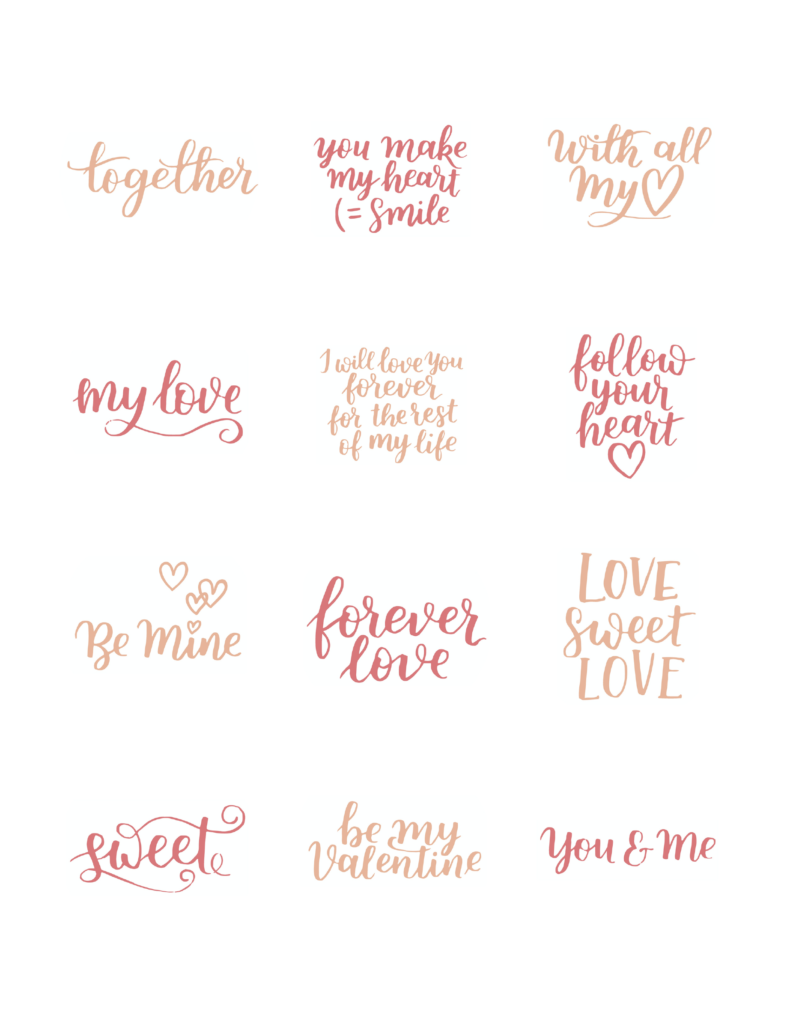 together
you make
my heart
(= Smile
With all
My
my love
I will love you
forever
for the rest
of my life
follow
your
heart
Be Mine
forever
love
LOVE
Sweet
LOVE
sweet
be my
Valentine
You & Me